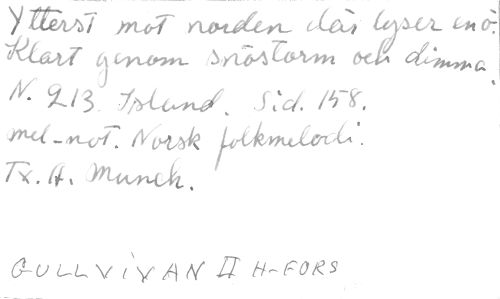 Ytterst mot norden där lyser en ö.
Klart genom snöstorm och dimma.
N. 213. Island. Sid. 158.
mel-not. Norsk folkmelodi.
Tx. A. Munch.
GULLVIVAN II H-FORS